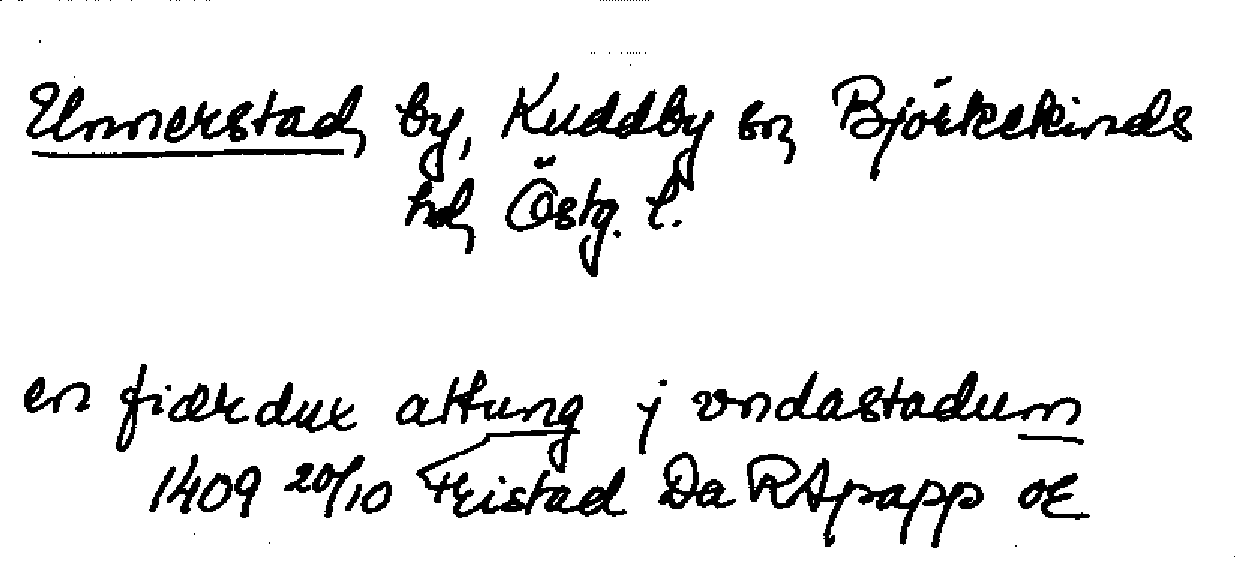 Unnerstad, by, Kuddby sn, Björkekinds
hd, Östg. l.
en fiærdux attung j vndastadum
1409 20/10 Ffristad Da RApapp or